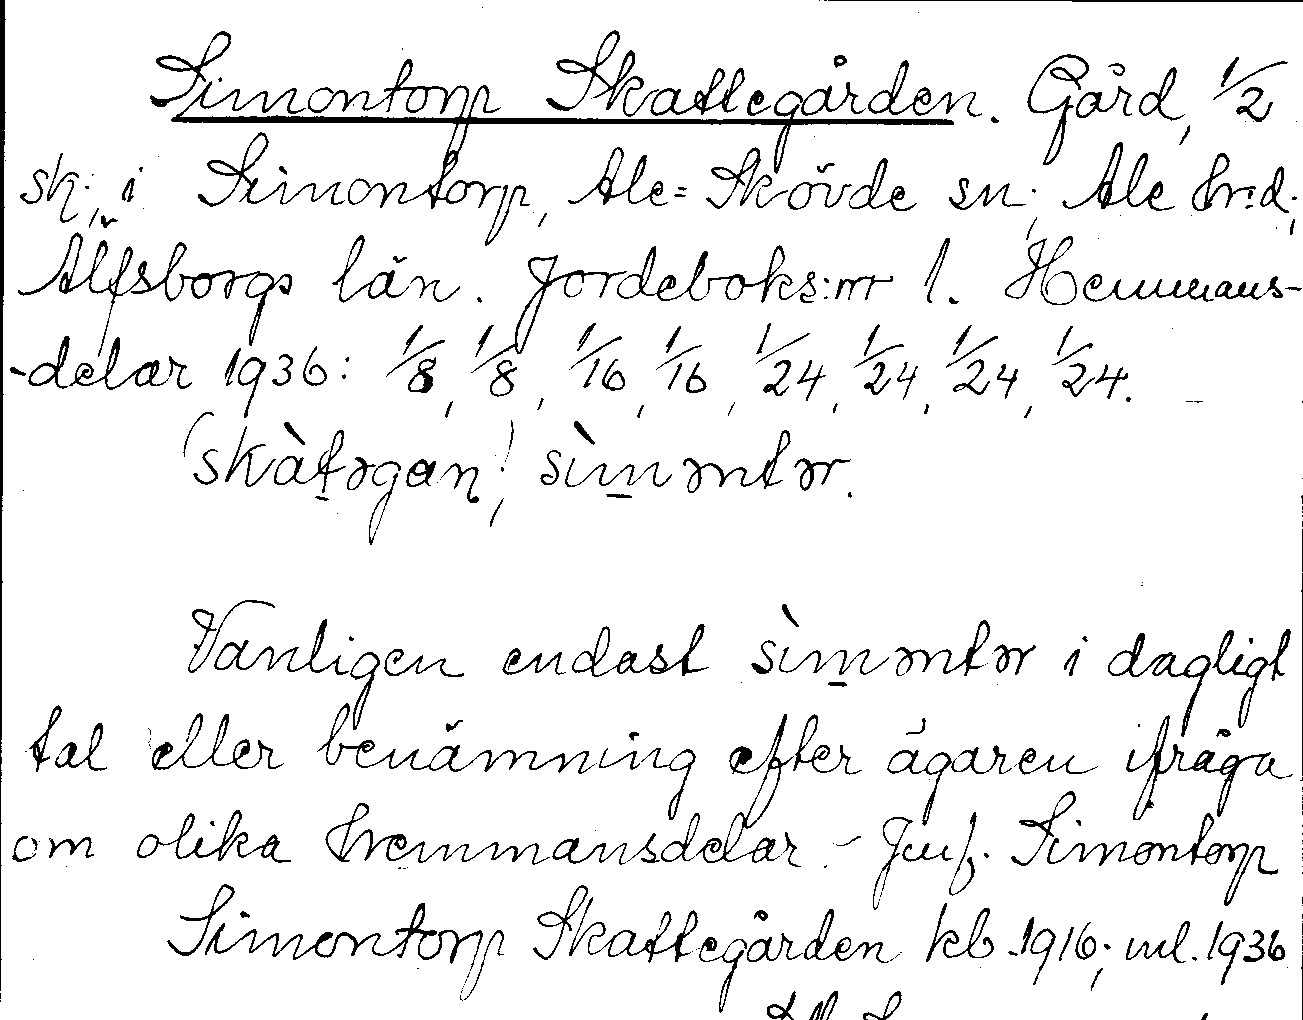 Simontorp Skattegården. Gård, 1/2
sk; i Simontorp, Ale=Skövde sn; Ale hrd;
Älfsborgs län. Jordeboks:nr 1. Hemmans-
-delar 1936: 1/8, 1/8, 1/16, 1/16, 1/24, 1/24, 1/24, 1/24. –
(skàtəgan!, sìməntər.
Vanligen endast sìməntər i dagligt
tal eller benämning efter ägaren ifråga
om olika hemmansdelar. – Jmf. Simontorp
Simontorp Skattegården kb. 1916; ml. 1936